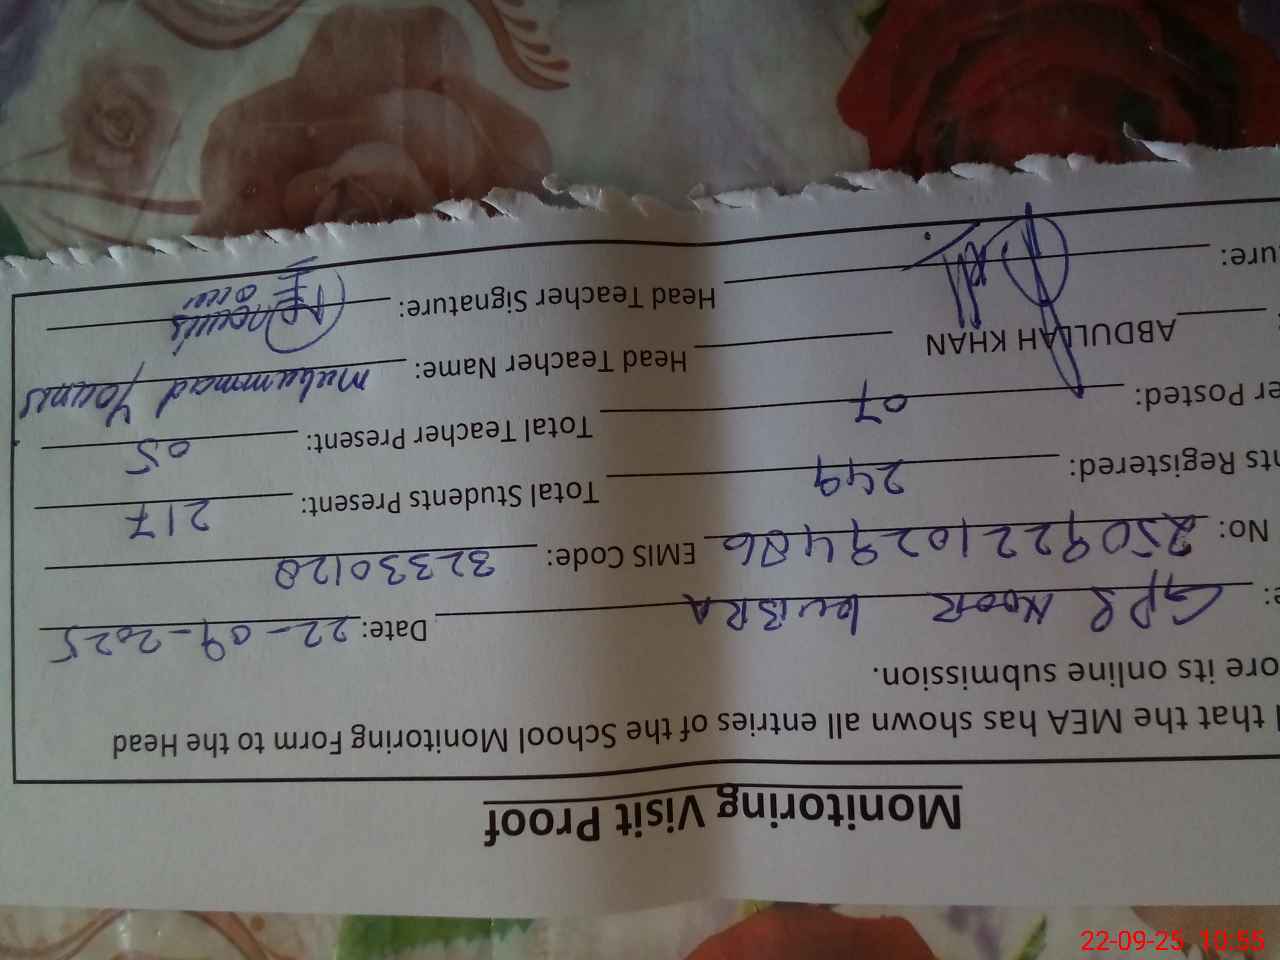 Monitoring Visit Proof
that the MEA has shown all entries of the School Monitoring Form to the Head
ore its online submission.
e: GPS NOOR KUBRA Date: 22-09-2025
No: 2509221029486 EMIS Code: 32330128
nts Registered: 249 Total Students Present: 217
er Posted: 07 Total Teacher Present: 05
ABDULLAH KHAN Head Teacher Name: Muhammad Younis
ure: Head Teacher Signature:
22-09-25 10:55